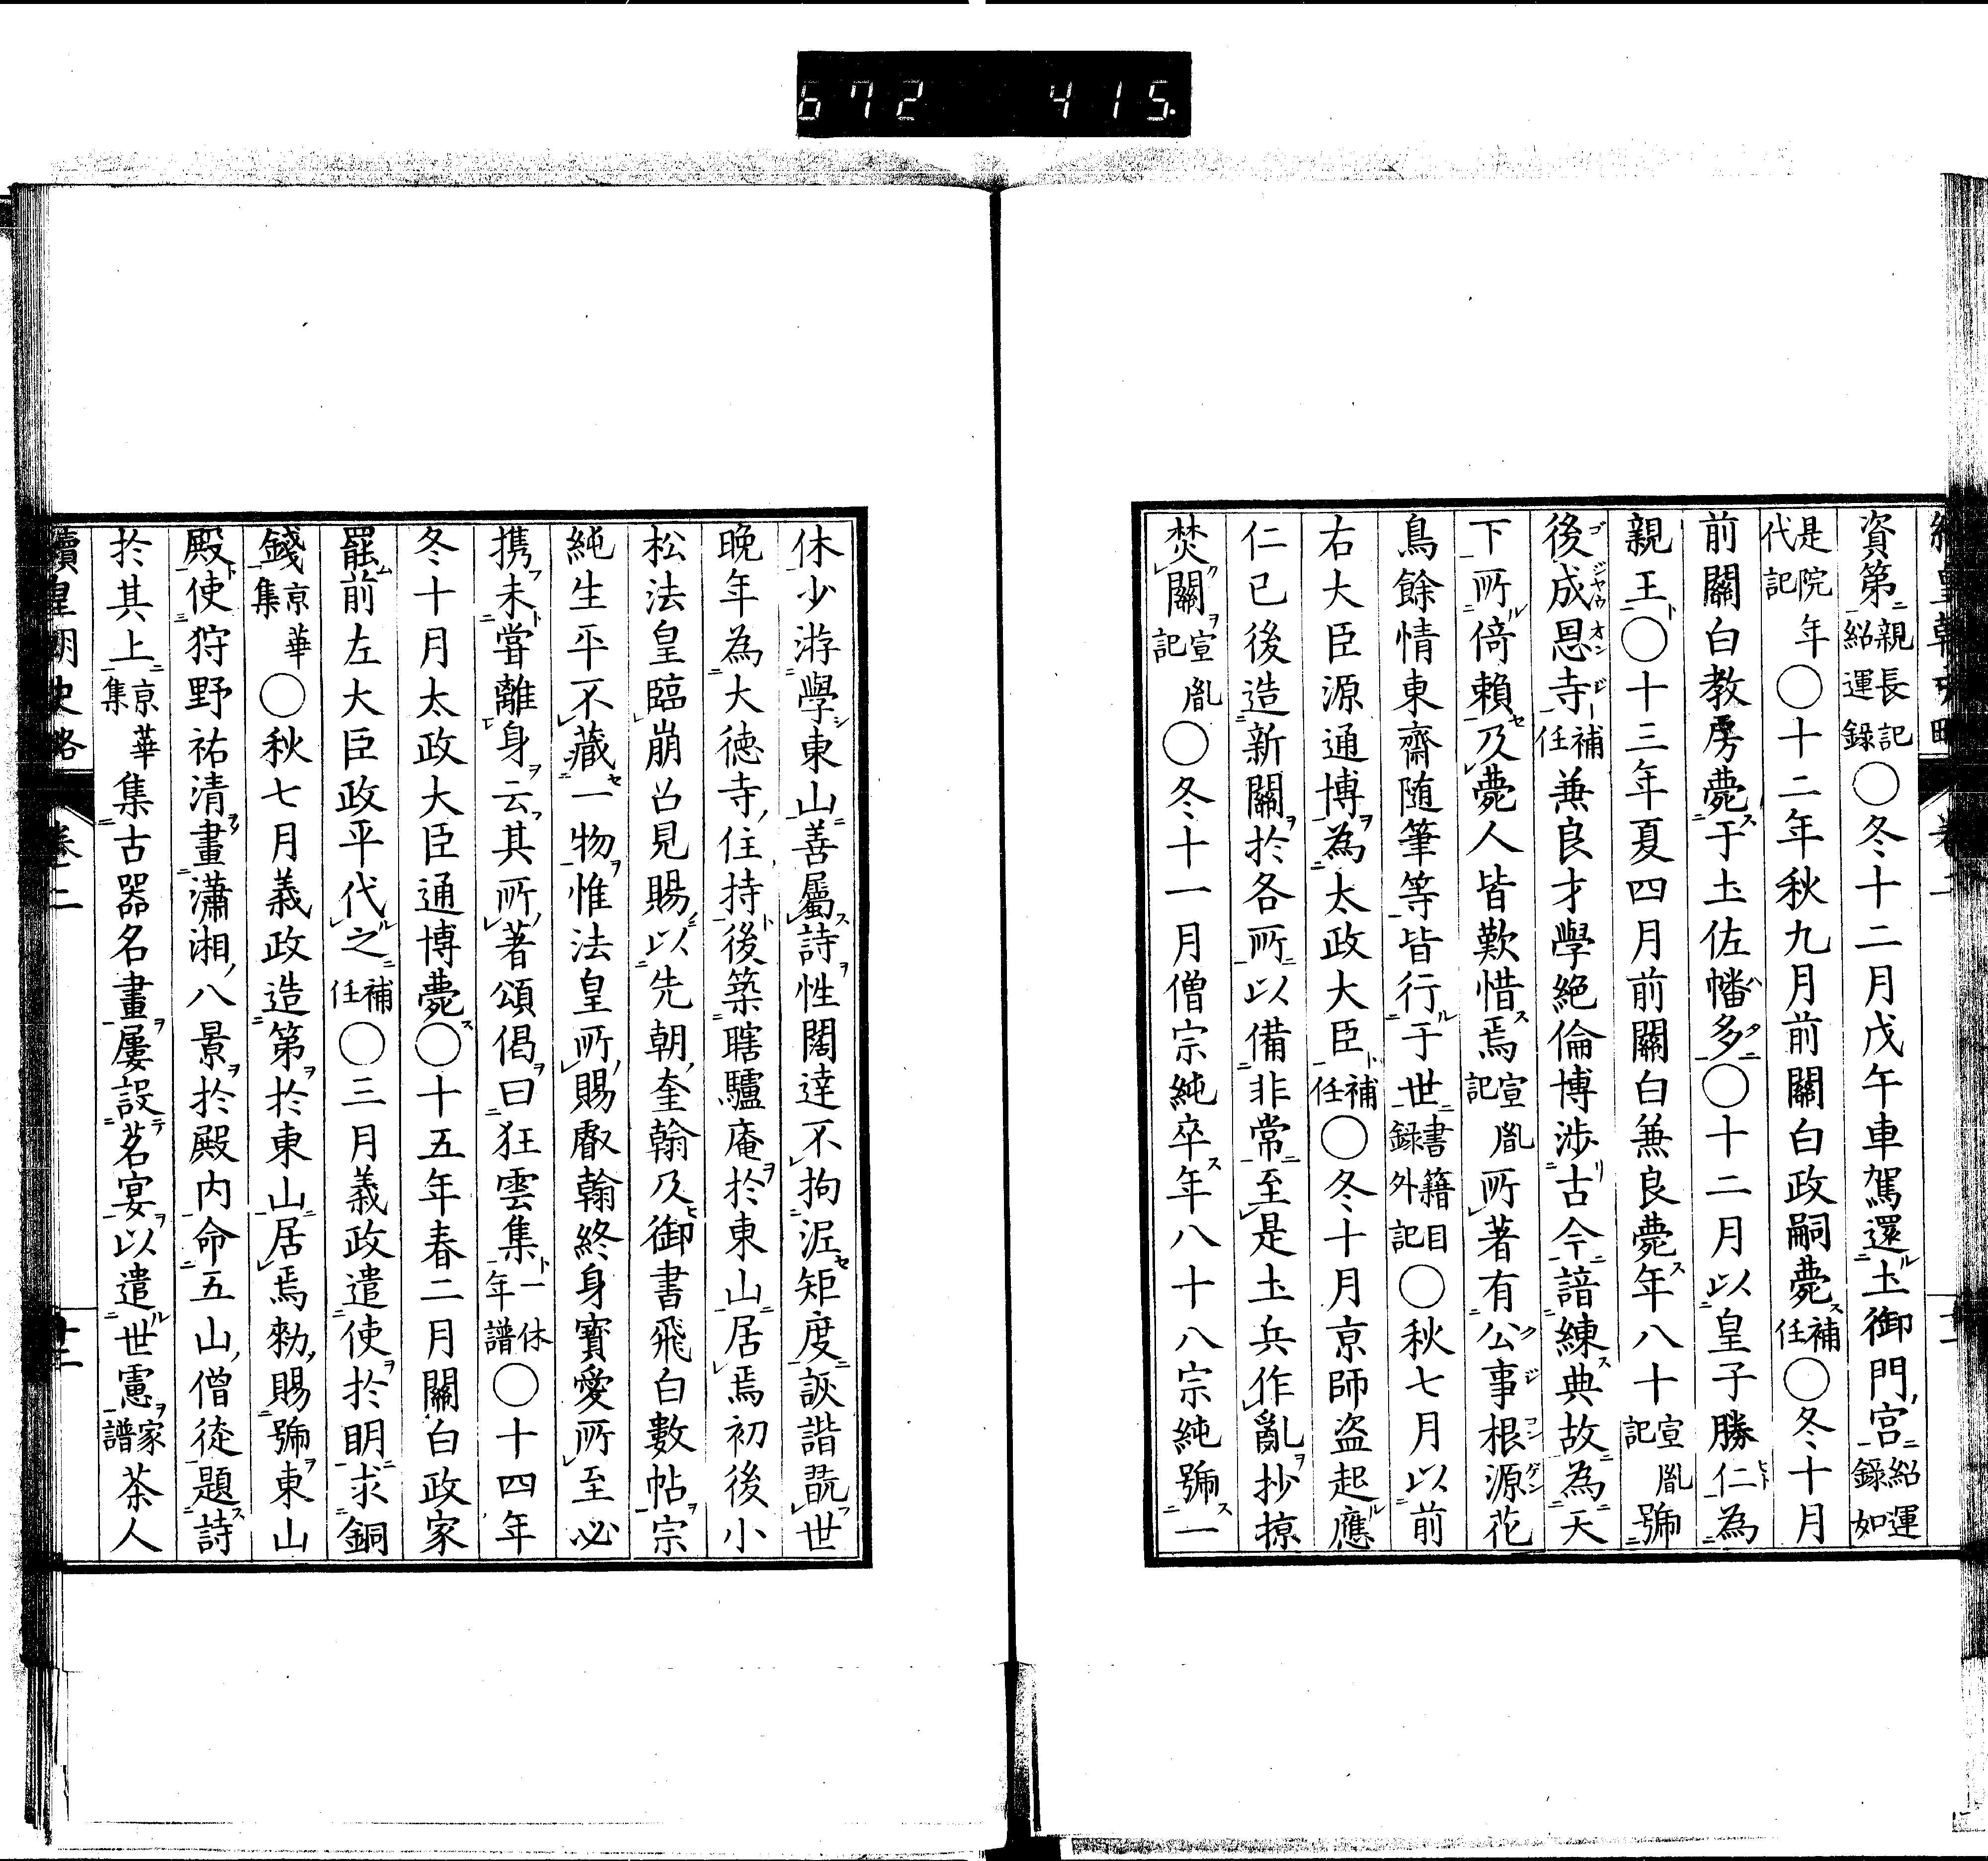 672 415
續皇朝史略 卷二 十二
資第親長記紹運錄○冬十二月戊午車駕還土御門宮紹運錄如
是院年代記○十二年秋九月前關白政嗣薨補任○冬十月
前關白教房薨于土佐幡多○十二月以皇子勝仁為
親王○十三年夏四月前關白兼良薨年八十宣胤記號
後成恩寺補任兼良才學絕倫博涉古今諳練典故為天
下所倚賴及薨人皆歎惜焉宣胤記所著有公事根源花
鳥餘情東齋随筆等皆行于世書籍目録外記○秋七月以前
右大臣源通博為太政大臣補任○冬十月京師盜起應
仁已後造新關於各所以備非常至是土兵作亂抄掠
焚關宣胤記○冬十一月僧宗純卒年八十八宗純號一
休少游學東山善屬詩性闊達不拘泥矩度詼諧翫世
晚年為大徳寺住持後築瞎驢庵於東山居焉初後小
松法皇臨崩召見賜以先朝奎翰及御書飛白數帖宗
純生平不藏一物惟法皇所賜叡翰終身寶愛所至必
携未嘗離身云其所著頌偈曰狂雲集一休年譜○十四年
冬十月太政大臣通博薨○十五年春二月關白政家
罷前左大臣政平代之補任○三月義政遣使於明求銅
錢京華集○秋七月義政造第於東山居焉勅賜號東山
殿使狩野祐清畫瀟湘八景於殿内命五山僧徒題詩
於其上京華集集古器名畫屢設茗宴以遣世慮家譜茶人
續皇朝史略 卷二 十二